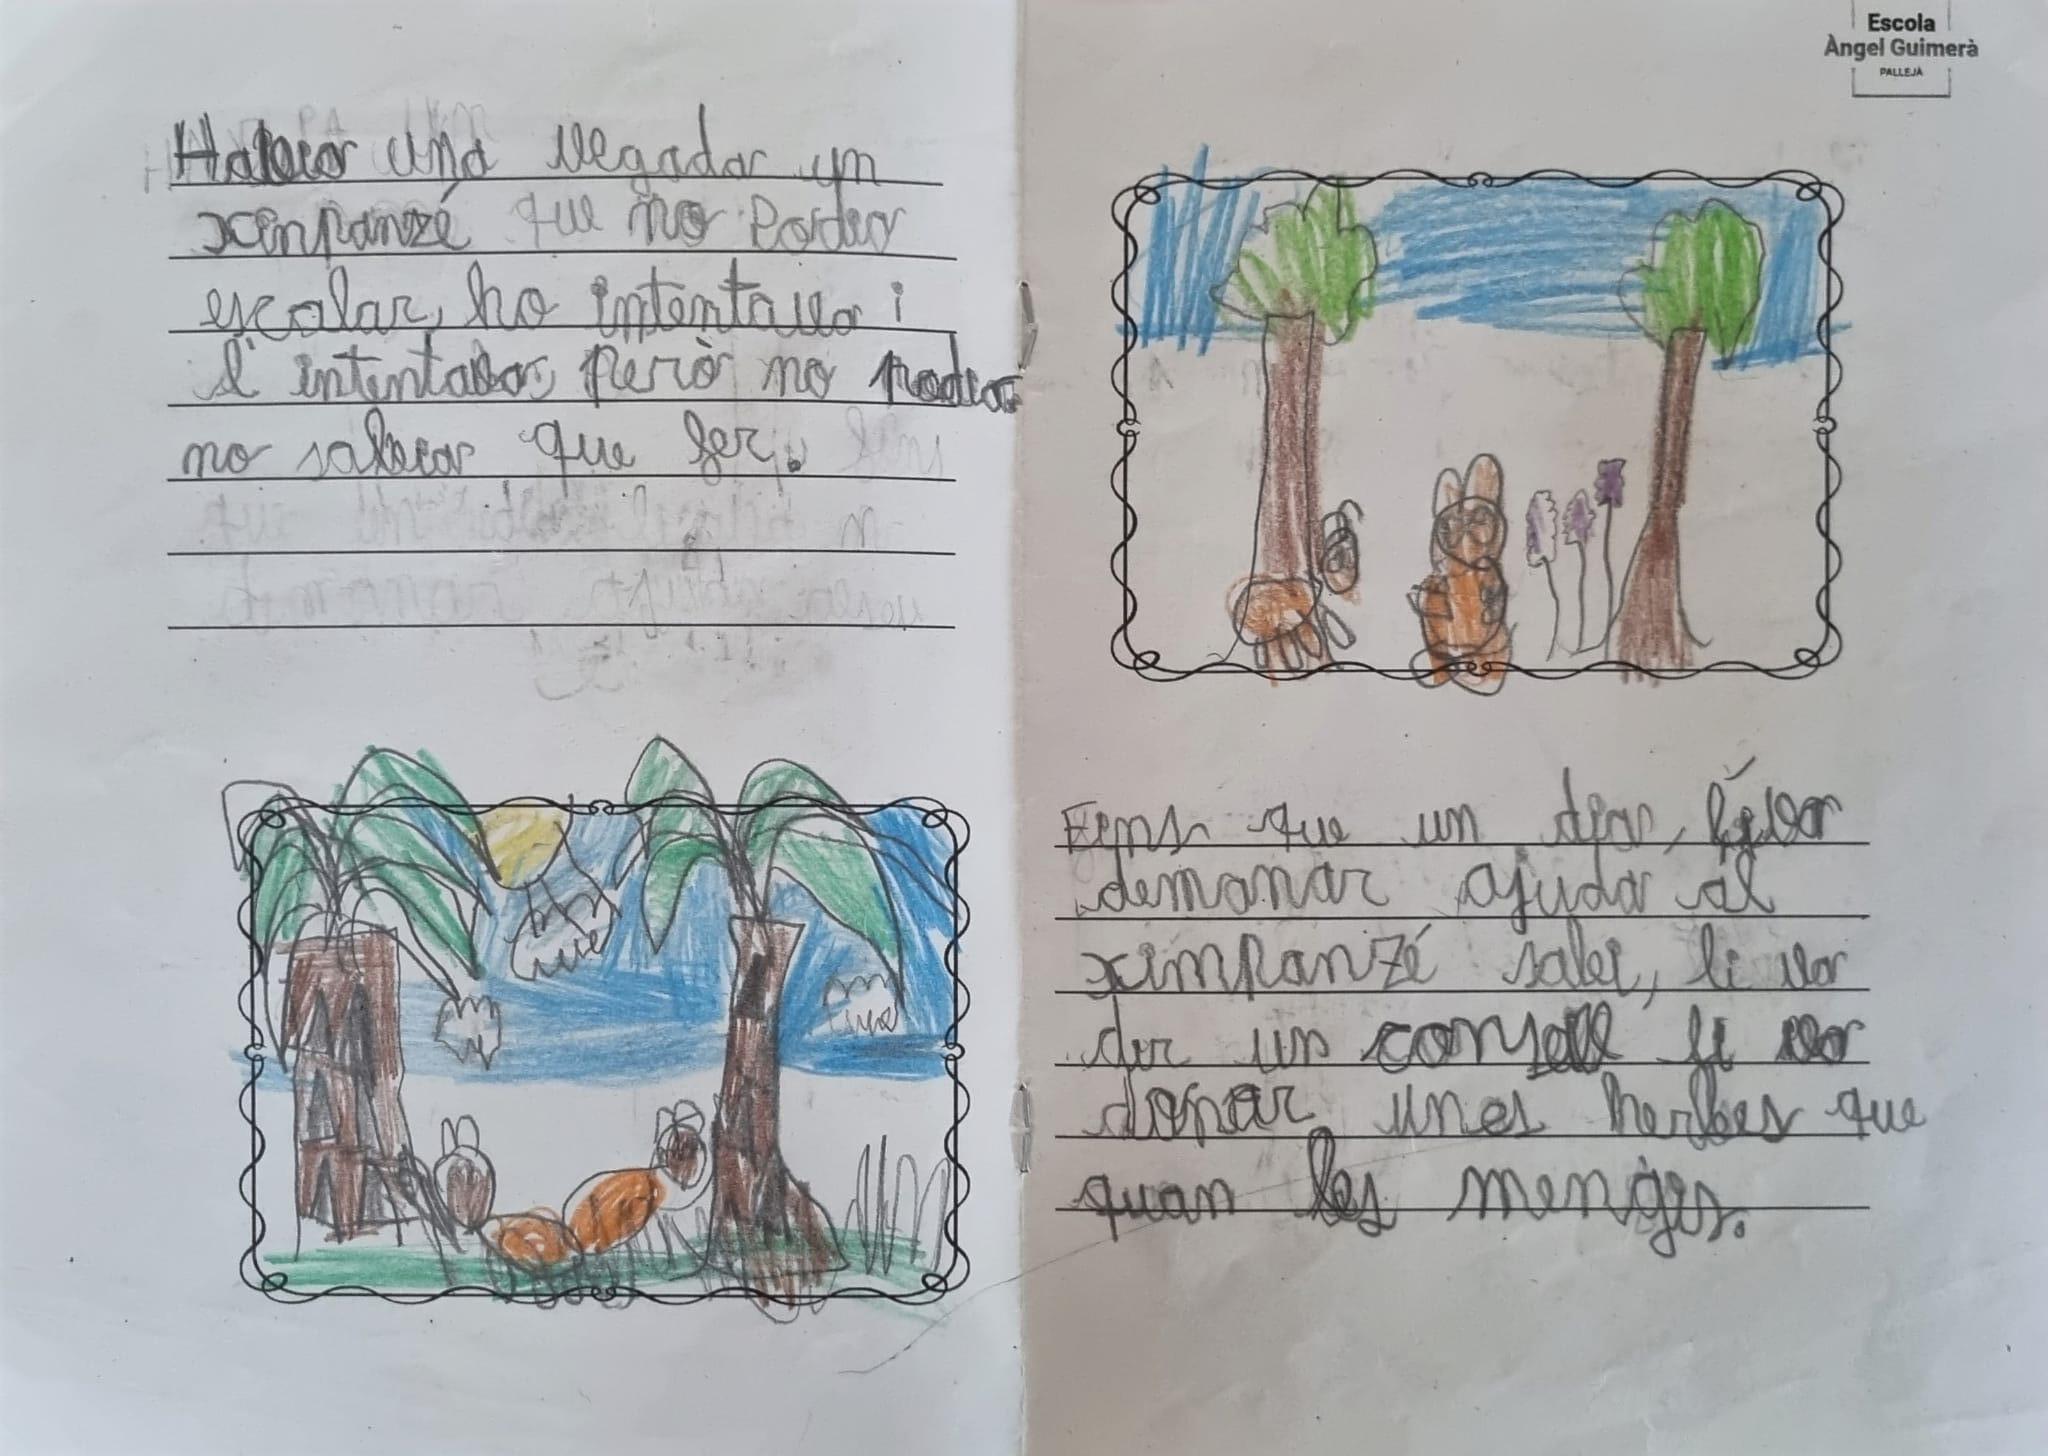 Habia una vegada un
xinpanzé que no podia
escalar, ho intentava i
l'intentaba, però no podia.
no sabia que fer.
Escola
Àngel Guimerà
PALLEJÀ
Fins que un dia, li va
demanar ajuda al
ximpanzé sabi, li va
dir un consell li va
donar unes herbes que
quan les mengis.